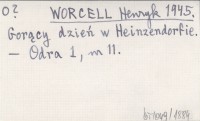 O? WORCELL Henryk 1945.
Gorący dzień w Heinzendorfie.
— Odra 1, nr 11.